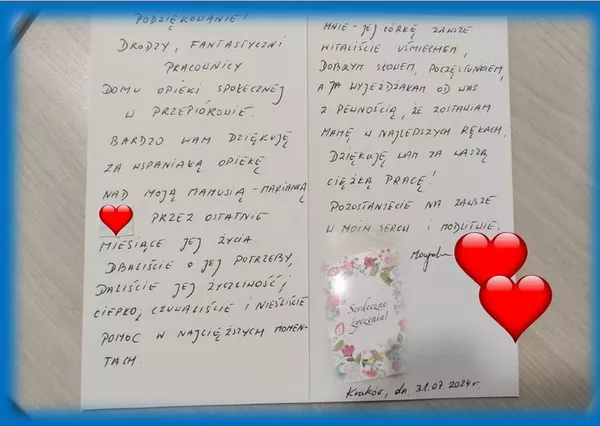 PODZIĘKOWANIE!
DRODZY, FANTASTYCZNI
PRACOWNICY
DOMU OPIEKI SPOŁECZNEJ
W PRZEPIÓROWIE.
BARDZO WAM DZIĘKUJĘ
ZA WSPANIAŁĄ OPIEKĘ
NAD MOJĄ MAMUSIĄ - MARIANNĄ
PRZEZ OSTATNIE
MIESIĄCE JEJ ŻYCIA.
DBALIŚCIE O JEJ POTRZEBY,
DALIŚCIE JEJ ŻYCZLIWOŚĆ,
CIEPŁO, CZUWALIŚCIE I NIEŚLIŚCIE
POMOC W NAJCIĘŻSZYCH MOMEN-
TACH.
MNIE - JEJ CÓRKĘ ZAWSZE
WITALIŚCIE UŚMIECHEM,
DOBRYM SŁOWEM, POCZĘSTUNKIEM,
A JA WYJEŻDŻAŁAM OD WAS
Z PEWNOŚCIĄ, ŻE ZOSTAWIAM
MAMĘ W NAJLEPSZYCH RĘKACH.
DZIĘKUJĘ WAM ZA WASZĄ
CIĘŻKĄ PRACĘ!
POZOSTANIECIE NA ZAWSZE
W MOIM SERCU I MODLITWIE.
Serdeczne
życzenia!
Kraków, dn. 31.07.2024r.